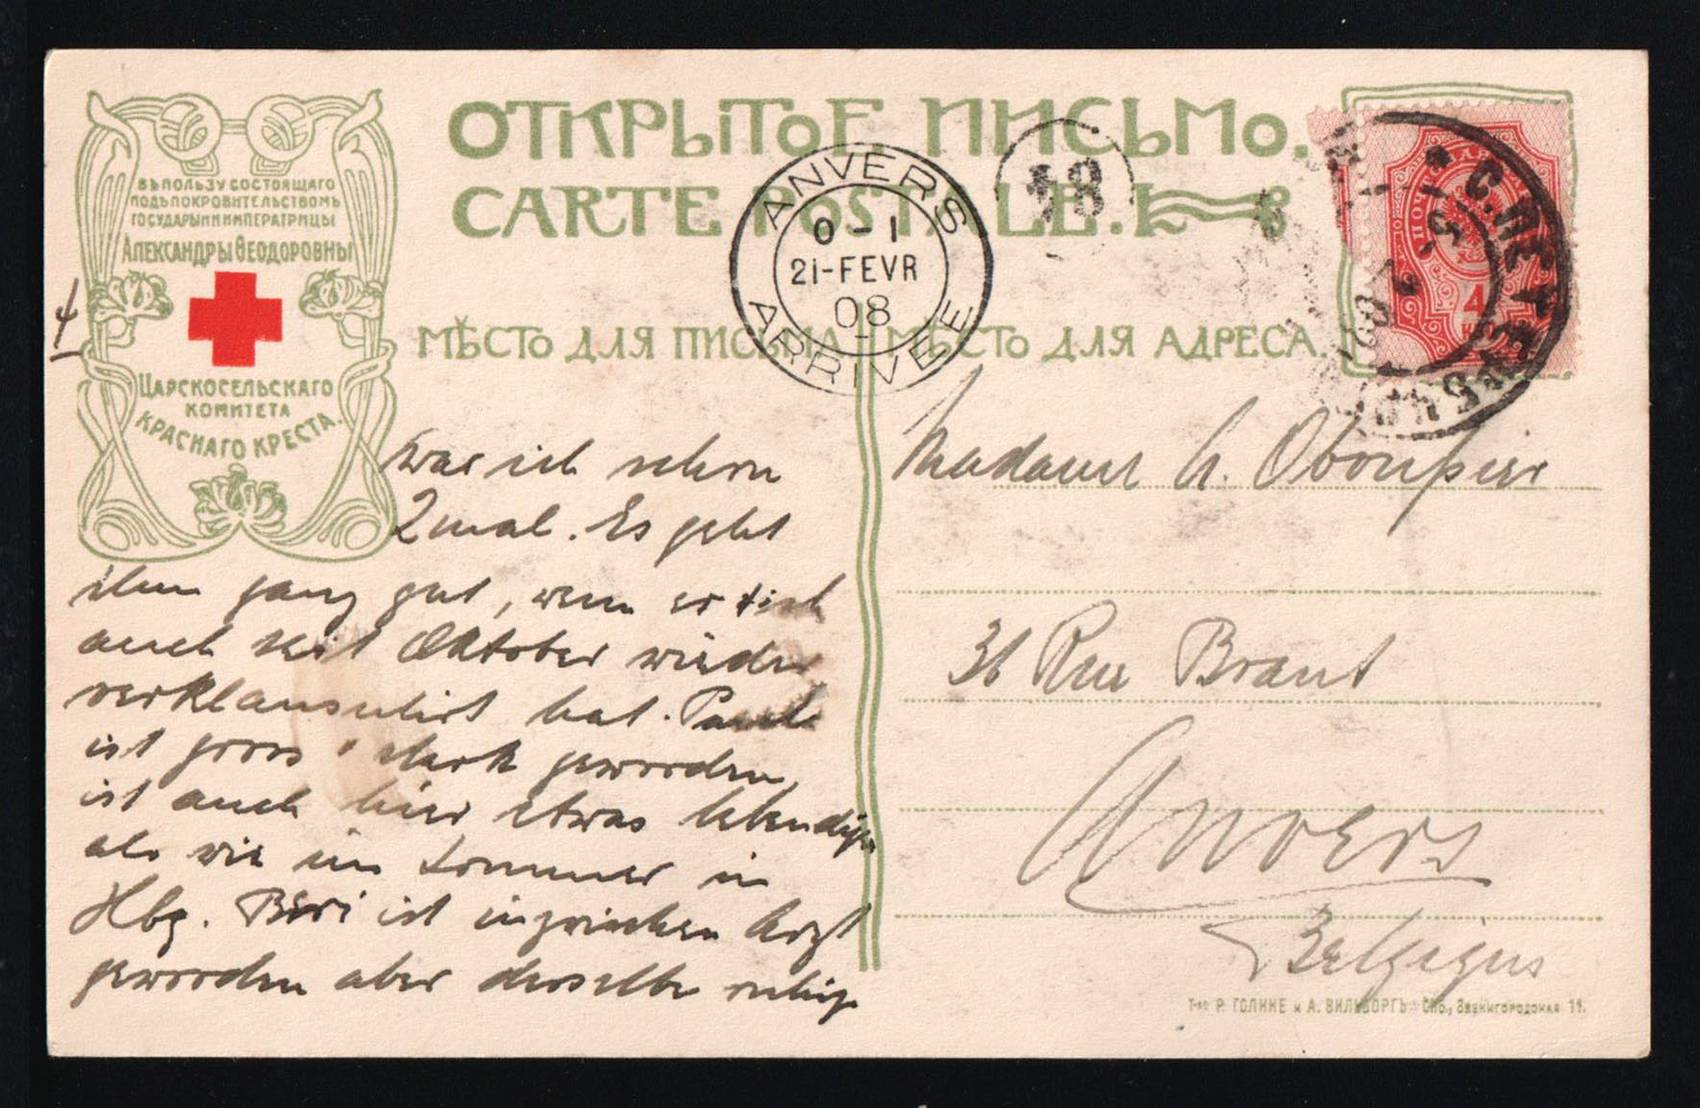 ОТКРЫТОЕ ПИСЬМО.
CARTE POSTALE.
ВЪ ПОЛЬЗУ СОСТОЯЩАГО
ПОДЪ ПОКРОВИТЕЛЬСТВОМЪ
ГОСУДАРЫНИ ИМПЕРАТРИЦЫ
АЛЕКСАНДРЫ ѲЕОДОРОВНЫ
ЦАРСКОСЕЛЬСКАГО
КОМИТЕТА
КРАСНАГО КРЕСТА.
ANVERS
0-1
21-FEVR
08
ARRIVEE
48
С.ПЕТЕРБУРГ
4
МѢСТО ДЛЯ ПИСЬМА
МѢСТО ДЛЯ АДРЕСА.
war ich schon
2 mal. Es geht
ihm ganz gut, wenn er sich
auch seit Oktober wieder
verklausulirt hat. Paul
ist gross & stark geworden,
ist auch hier etwas lebendiger
als wie im Sommer in
Hbg. Bori ist inzwischen Arzt
geworden aber derselbe ruhige
Madame A.
31 Rue Brant
Anvers
Belgique
Т-во Р. ГОЛИКЕ и А. ВИЛЬБОРГЪ. Спб., Звенигородская 11.